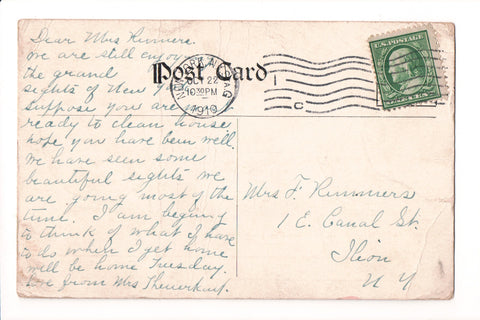 Dear Mrs Rimmers.
we are still enjoying
the grand
sights of New York
suppose you are
ready to clean house
hope you have been well.
We have seen some
beautiful sights we
are going most of the
time. I am begining
to think of what I have
to do when I get home
will be home Tuesday.
Love from Mrs
Post Card
NEW YORK, N.Y.
OCT 22
1030PM
1910
U.S. POSTAGE
Mrs F. Rimmers
1 E. Canal St.
Ilion
N Y